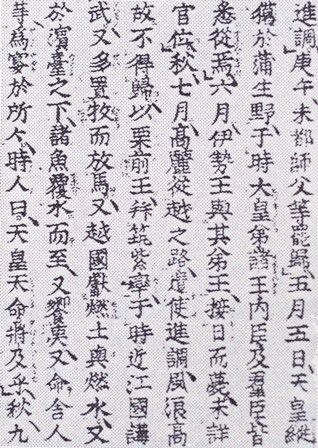 進調庚午未都師父等罷歸五月五日天皇縱
獵於蒲生野于時大皇弟諸王内臣及羣臣皆
悉從焉六月伊勢王與其弟王接日而薨未詳
官位秋七月高麗從越之路遣使進調風浪高
故不得歸以栗前王拜筑紫率于時近江國講
武又多置牧而放馬又越國獻燃土與燃水又
於濱臺之下諸魚覆水而至又饗蝦夷又命舎人
等爲宴於所々時人曰天皇天命將及乎秋九